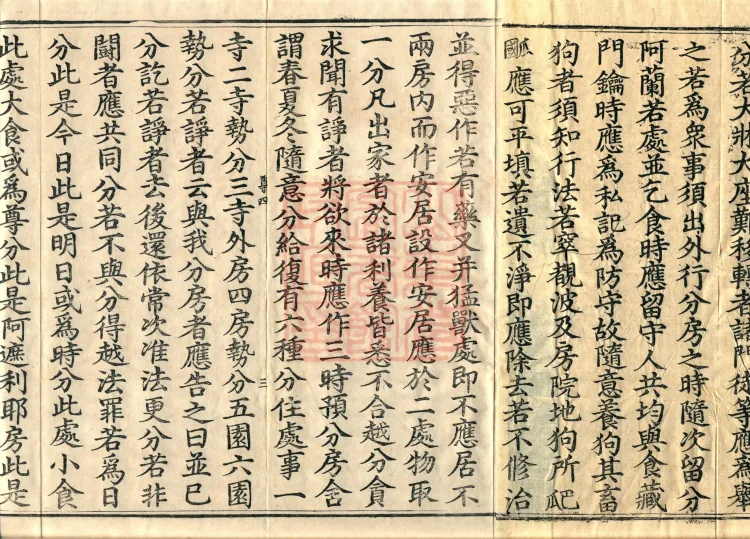 若大牀大座難移轉者諸門徒等應為舉
之若為眾事須出外行分房之時隨次留分
阿蘭若處並乞食時應留守人共均與食藏
門鑰時應為私記為防守故隨意養狗其畜
狗者須知行法若窣覩波及房院地狗所爬
應可平填若遺不淨即應除去若不修治
並得惡作若有藥叉并猛獸處即不應居不
兩房內而作安居設作安居應於二處物取
一分凡出家者於諸利養皆悉不合越分貪
求聞有諍者將欲來時應作三時預分房舍
謂春夏冬隨意分給復有六種分住處事一
四 三
寺二寺勢分三寺外房四房勢分五園六園
勢分若諍者云與我分房者應告之曰並已
分訖若諍者去後還依常次准法更分若非
鬪者應共同分若不與分得越法罪若為日
分此是今日此是明日或為時分此處小食
此處大食或為尊分此是阿遮利耶房此是